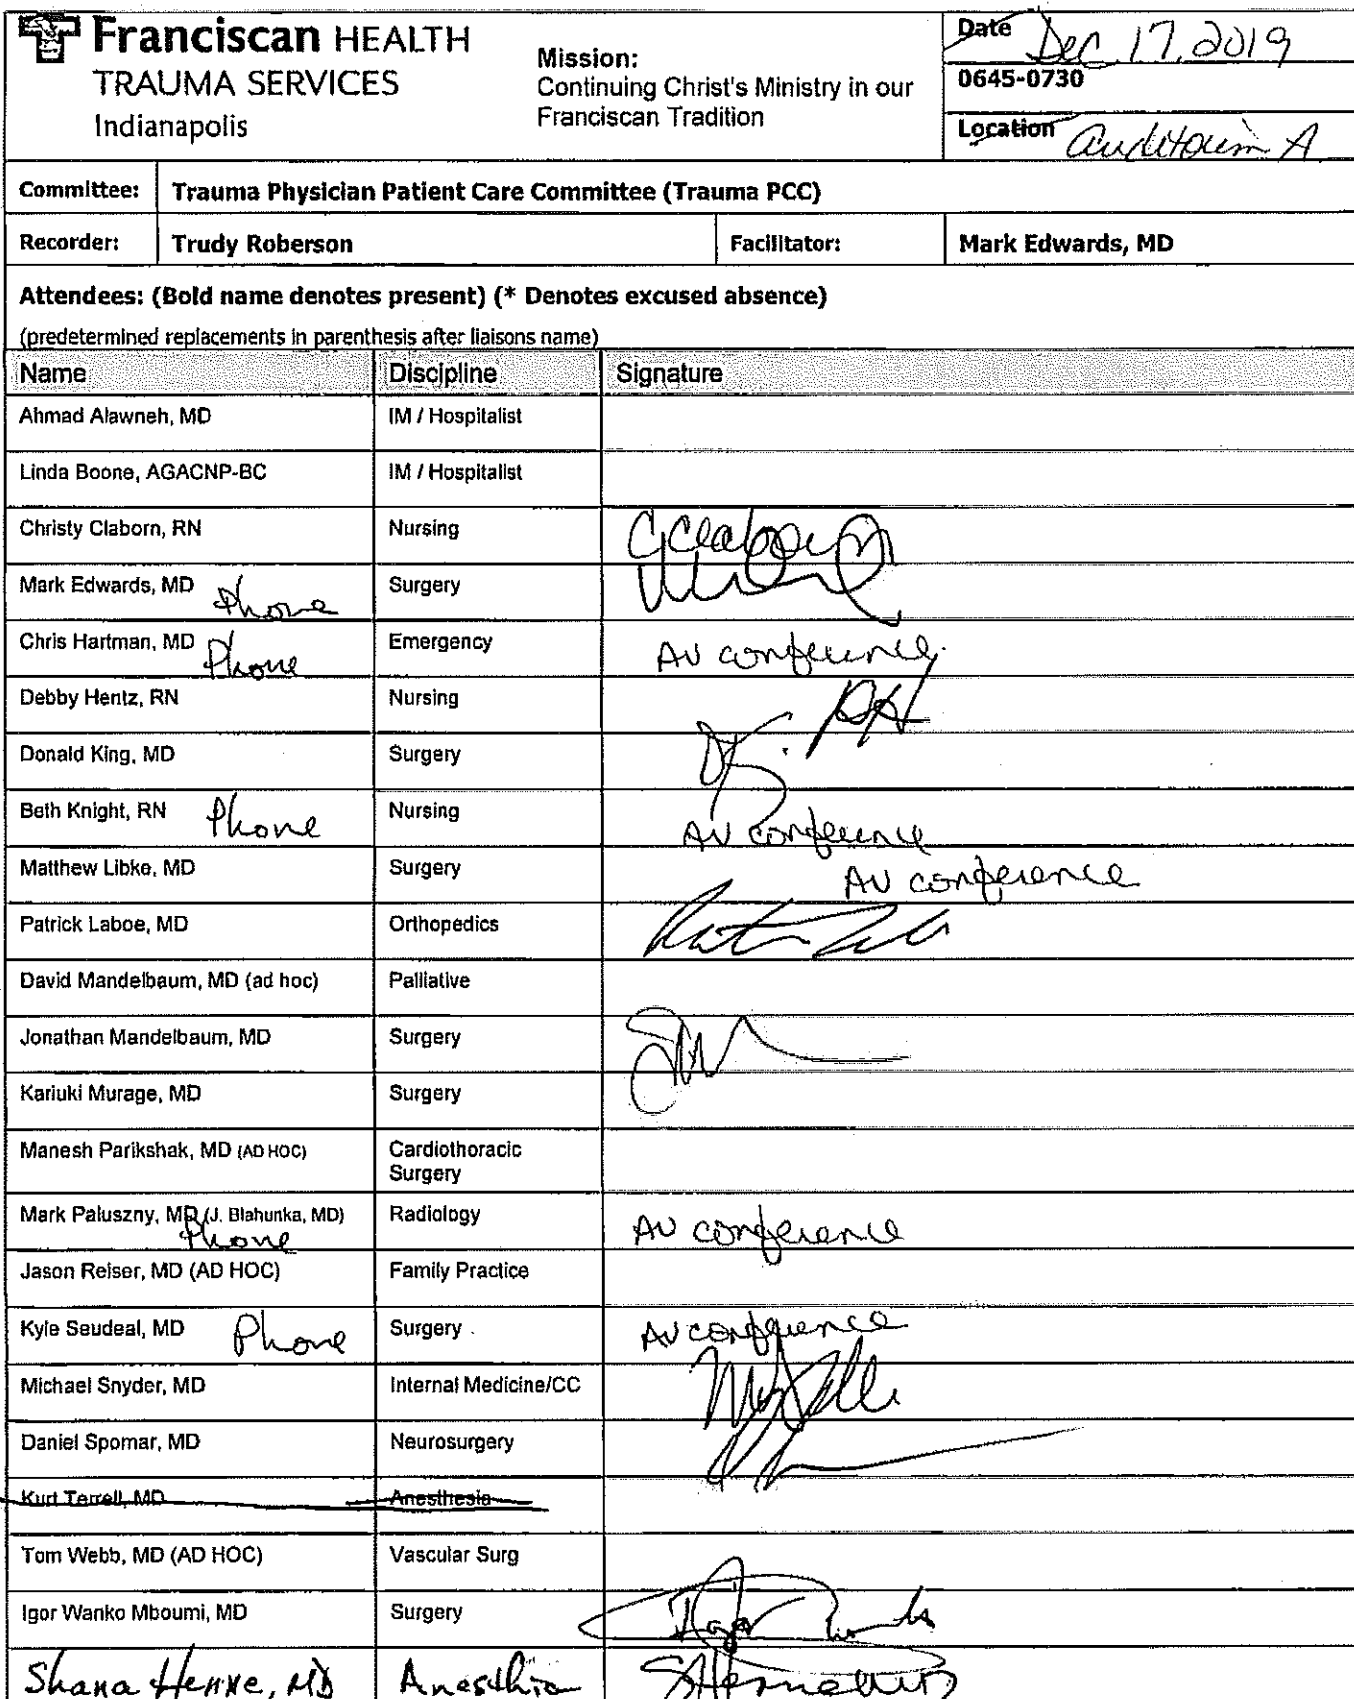 Franciscan HEALTH
TRAUMA SERVICES
Indianapolis
Mission:
Continuing Christ's Ministry in our
Franciscan Tradition
Date Dec 17, 2019
0645-0730
Location Auditorium A
Committee: Trauma Physician Patient Care Committee (Trauma PCC)
Recorder: Trudy Roberson Facilitator: Mark Edwards, MD
Attendees: (Bold name denotes present) (* Denotes excused absence)
(predetermined replacements in parenthesis after liaisons name)
Name Discipline Signature
Ahmad Alawneh, MD IM / Hospitalist
Linda Boone, AGACNP-BC IM / Hospitalist
Christy Claborn, RN Nursing CClaborn
Mark Edwards, MD Phone Surgery
Chris Hartman, MD Phone Emergency AV conference
Debby Hentz, RN Nursing DH
Donald King, MD Surgery
Beth Knight, RN Phone Nursing AV conference
Matthew Libke, MD Surgery AV conference
Patrick Laboe, MD Orthopedics
David Mandelbaum, MD (ad hoc) Palliative
Jonathan Mandelbaum, MD Surgery JM
Kariuki Murage, MD Surgery
Manesh Parikshak, MD (AD HOC) Cardiothoracic
Surgery
Mark Paluszny, MD (J. Blahunka, MD) Phone Radiology AV conference
Jason Reiser, MD (AD HOC) Family Practice
Kyle Seudeal, MD Phone Surgery AV conference
Michael Snyder, MD Internal Medicine/CC
Daniel Spomar, MD Neurosurgery
Kurt Terrell, MD Anesthesia
Tom Webb, MD (AD HOC) Vascular Surg
Igor Wanko Mboumi, MD Surgery Igor
Shana Henne, MD Anesthia SHenne MD